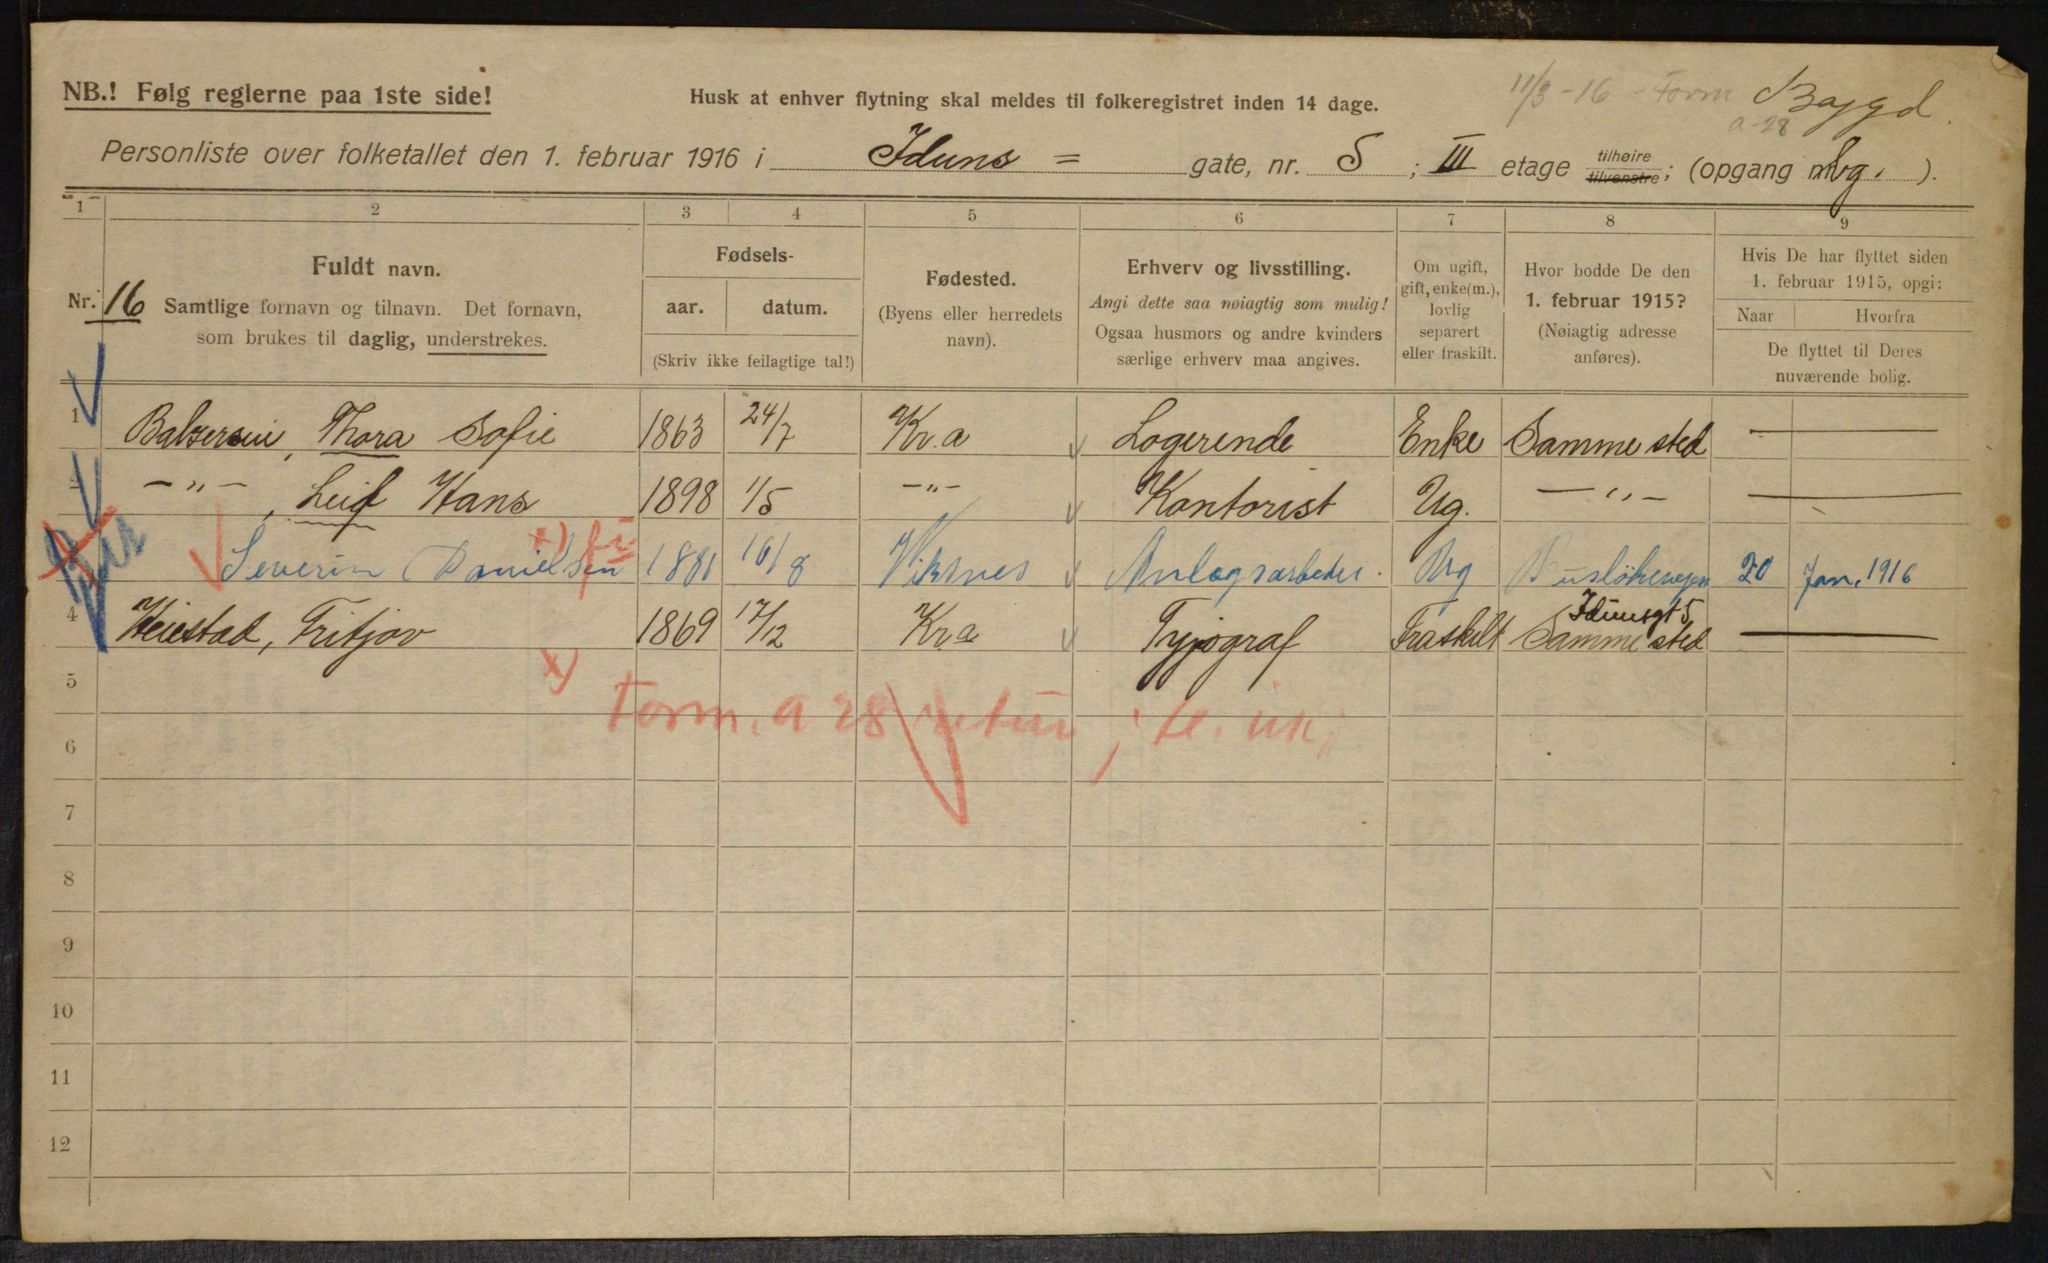 NB.! Følg reglerne paa 1ste side!
Husk at enhver flytning skal meldes til folkeregistret inden 14 dage.
11/3 -16 - Form
a-28
Personliste over folketallet den 1. februar 1916 i Iduns = gate, nr. 5 ; III etage tilhøire tilvenstre; (opgang ).
1 2 3 4 5 6 7 8 9
Nr. 16
Fuldt navn.
Samtlige fornavn og tilnavn. Det fornavn,
som brukes til daglig, understrekes.
Fødsels-
aar. datum.
(Skriv ikke feilagtige tal!)
Fødested.
(Byens eller herredets
navn).
Erhverv og livsstilling.
Angi dette saa nøiagtig som mulig!
Ogsaa husmors og andre kvinders
særlige erhverv maa angives.
Om ugift,
gift, enke(m.),
lovlig
separert
eller fraskilt.
Hvor bodde De den
1. februar 1915?
(Nøiagtig adresse
anføres).
Hvis De har flyttet siden
1. februar 1915, opgi:
Naar Hvorfra
De flyttet til Deres
nuværende bolig.
1 Balsersen, Thora Sofie 1863 24/7 Kr.a Logerende Enke Samme sted —
2 —"— , Leif Hans 1898 1/5 —"— Kontorist Ug. —"— —
Severin Danielsen x) 1881 16/8 Viksnes Anlægsarbeder. Ug 20 Jan. 1916
4 Heiestad, Fritjov 1869 17/12 Kr.a Typograf Fraskilt Idunsgt 5 Samme sted —
x) Form. a 28 retur,
5
6
7
8
9
10
11
12